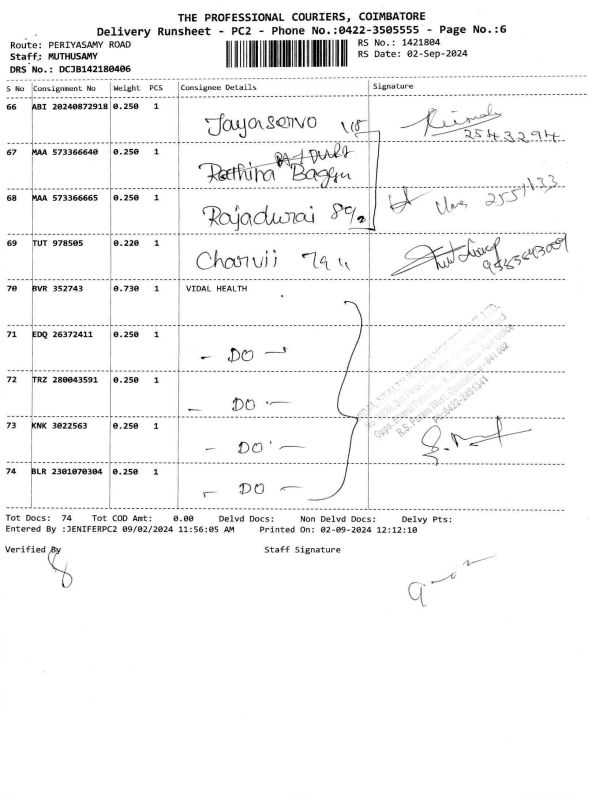 THE PROFESSIONAL COURIERS, COIMBATORE
Delivery Runsheet - PC2 - Phone No.:0422-3505555 - Page No.:6
Route: PERIYASAMY ROAD
RS No.: 1421804
Staff: MUTHUSAMY
RS Date: 02-Sep-2024
DRS No.: DCJB142180406
S No Consignment No Weight PCS Consignee Details Signature
66 ABI 20240872918 0.250 1
Jayaservo
2543294
67 MAA 573366640 0.250 1
Rethina
68 MAA 573366665 0.250 1
Rajadurai
69 TUT 978505 0.220 1
Charvii
70 BVR 352743 0.730 1 VIDAL HEALTH
71 EDQ 26372411 0.250 1
- DO -
72 TRZ 280043591 0.250 1
- DO -
73 KNK 3022563 0.250 1
- DO -
74 BLR 2301070304 0.250 1
- DO -
Tot Docs: 74 Tot COD Amt: 0.00 Delvd Docs: Non Delvd Docs: Delvy Pts:
Entered By :JENIFERPC2 09/02/2024 11:56:05 AM Printed On: 02-09-2024 12:12:10
Verified By Staff Signature